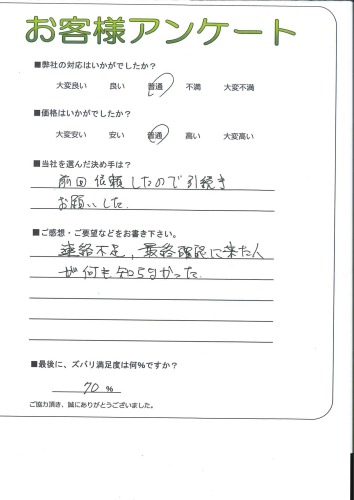 お客様アンケート
■弊社の対応はいかがでしたか?
大変良い 良い 普通 不満 大変不満
■価格はいかがでしたか?
大変安い 安い 普通 高い 大変高い
■当社を選んだ決め手は?
前回依頼したので引続き
お願いした.
■ご感想・ご要望などをお書き下さい。
連絡不足,最終確認に来た人
が何も知らなかった.
■最後に、ズバリ満足度は何%ですか?
70 %
ご協力頂き、誠にありがとうございました。